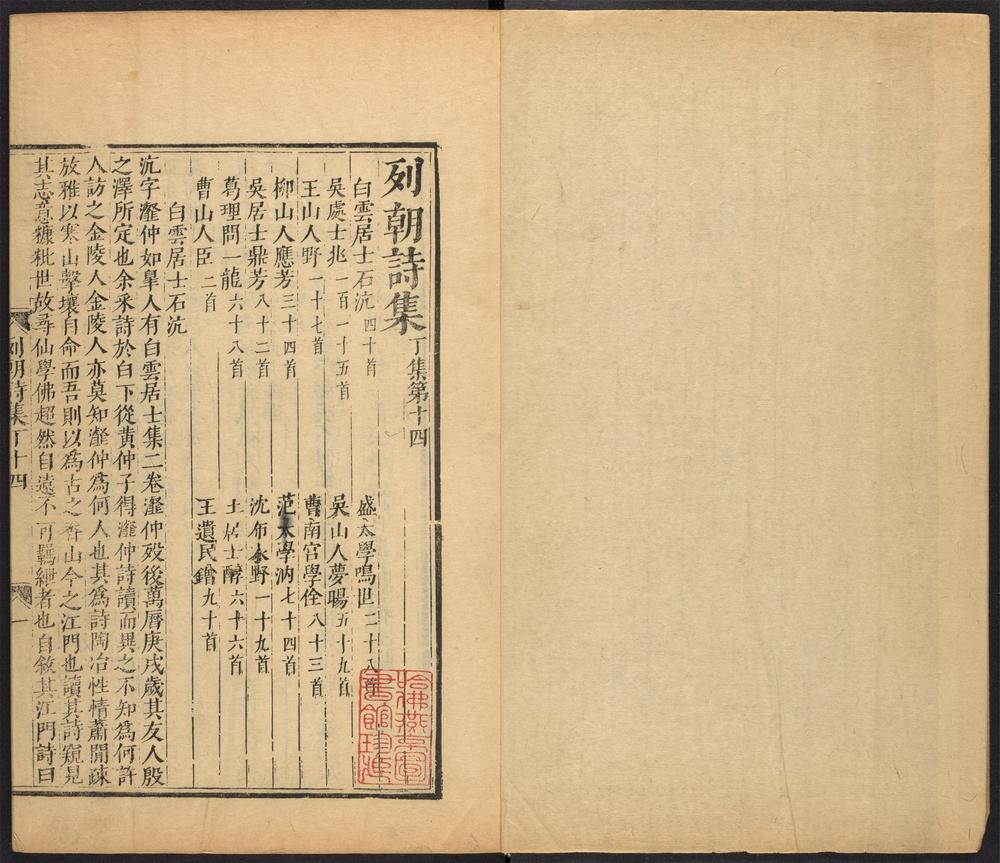 列朝詩集丁集第十四
白雲居士石沆四十首 盛太學鳴世二十八首
吳處士兆一百一十五首 吳山人夢暘五十九首
王山人野一十七首 曹南宮學佺八十三首
柳山人應芳三十四首 范太學汭七十四首
吳居士鼎芳八十二首 沈布衣野一十九首
葛理問一龍六十八首 王居士醇六十六首
曹山人臣二首 王遺民鏳九十首
白雲居士石沆
沆字瀣仲如臯人有白雲居士集二卷瀣仲歿後萬曆庚戌歲其友人殷
之澤所定也余釆詩於白下從黃仲子得瀣仲詩讀而異之不知爲何許
人訪之金陵人金陵人亦莫知瀣仲爲何人也其爲詩陶冶性情蕭閒疎
放雅以寒山擊壤自命而吾則以爲古之香山今之江門也讀其詩窺見
其志意糠粃世故尋仙學佛超然自遠不可羈紲者也自敘其江門詩曰
列朝詩集丁十四 一
哈佛燕京圖書館珍藏